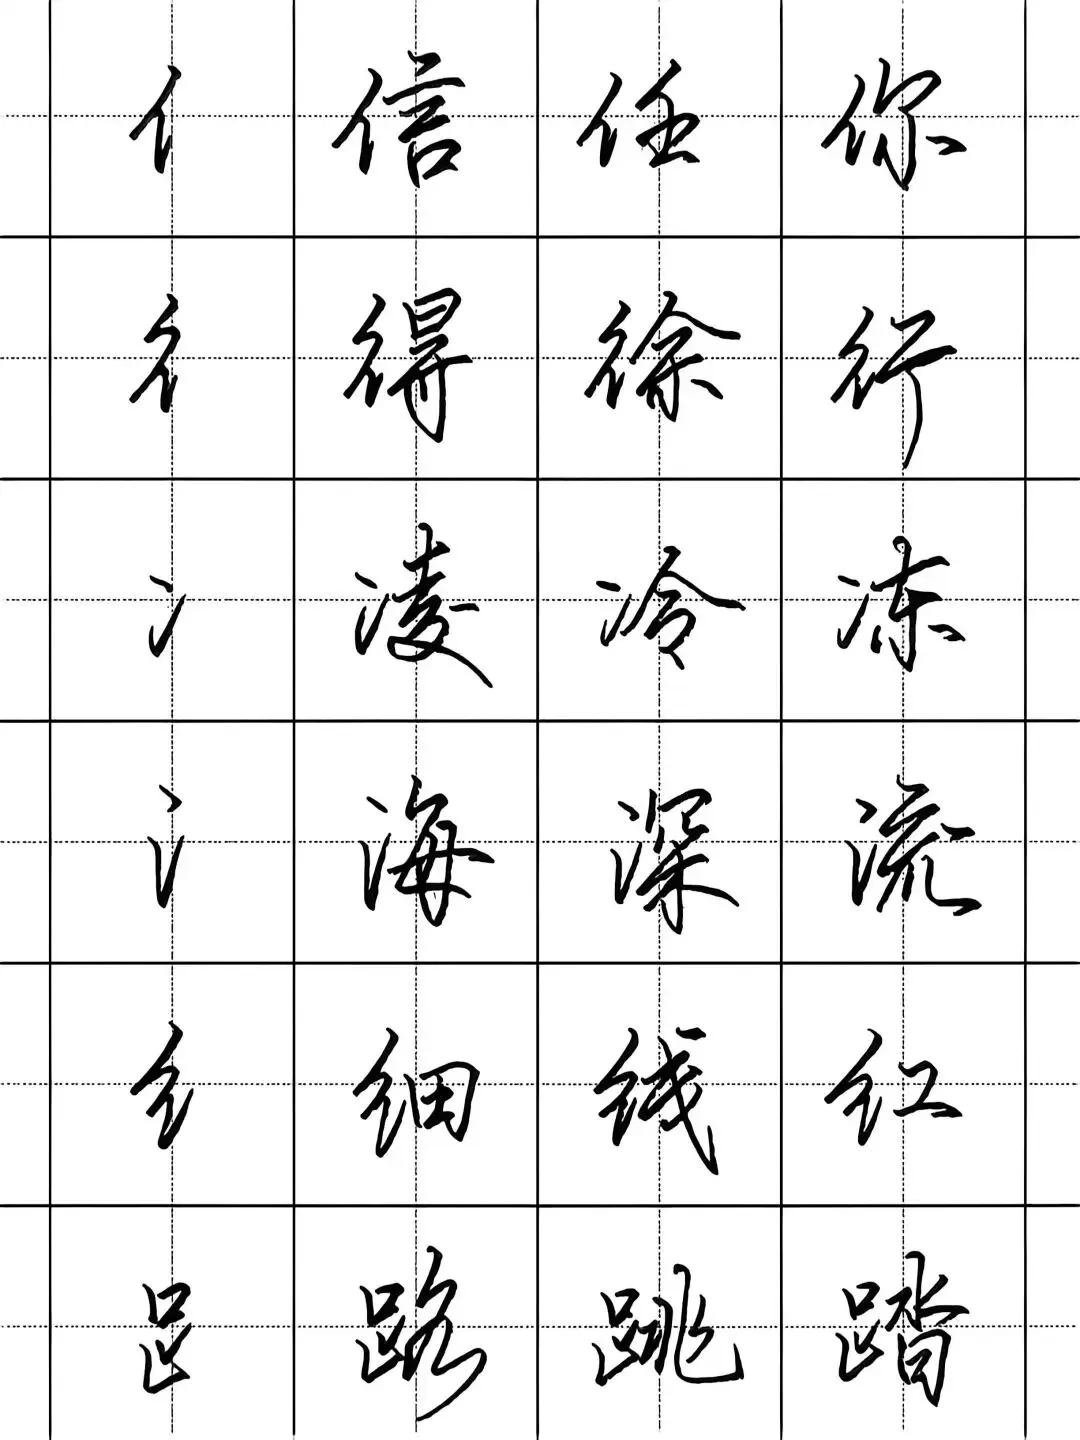 亻 信 任 你
彳 得 徐 行
冫 凌 冷 冻
氵 海 深 流
纟 细 线 红
𧾷 路 跳 踏